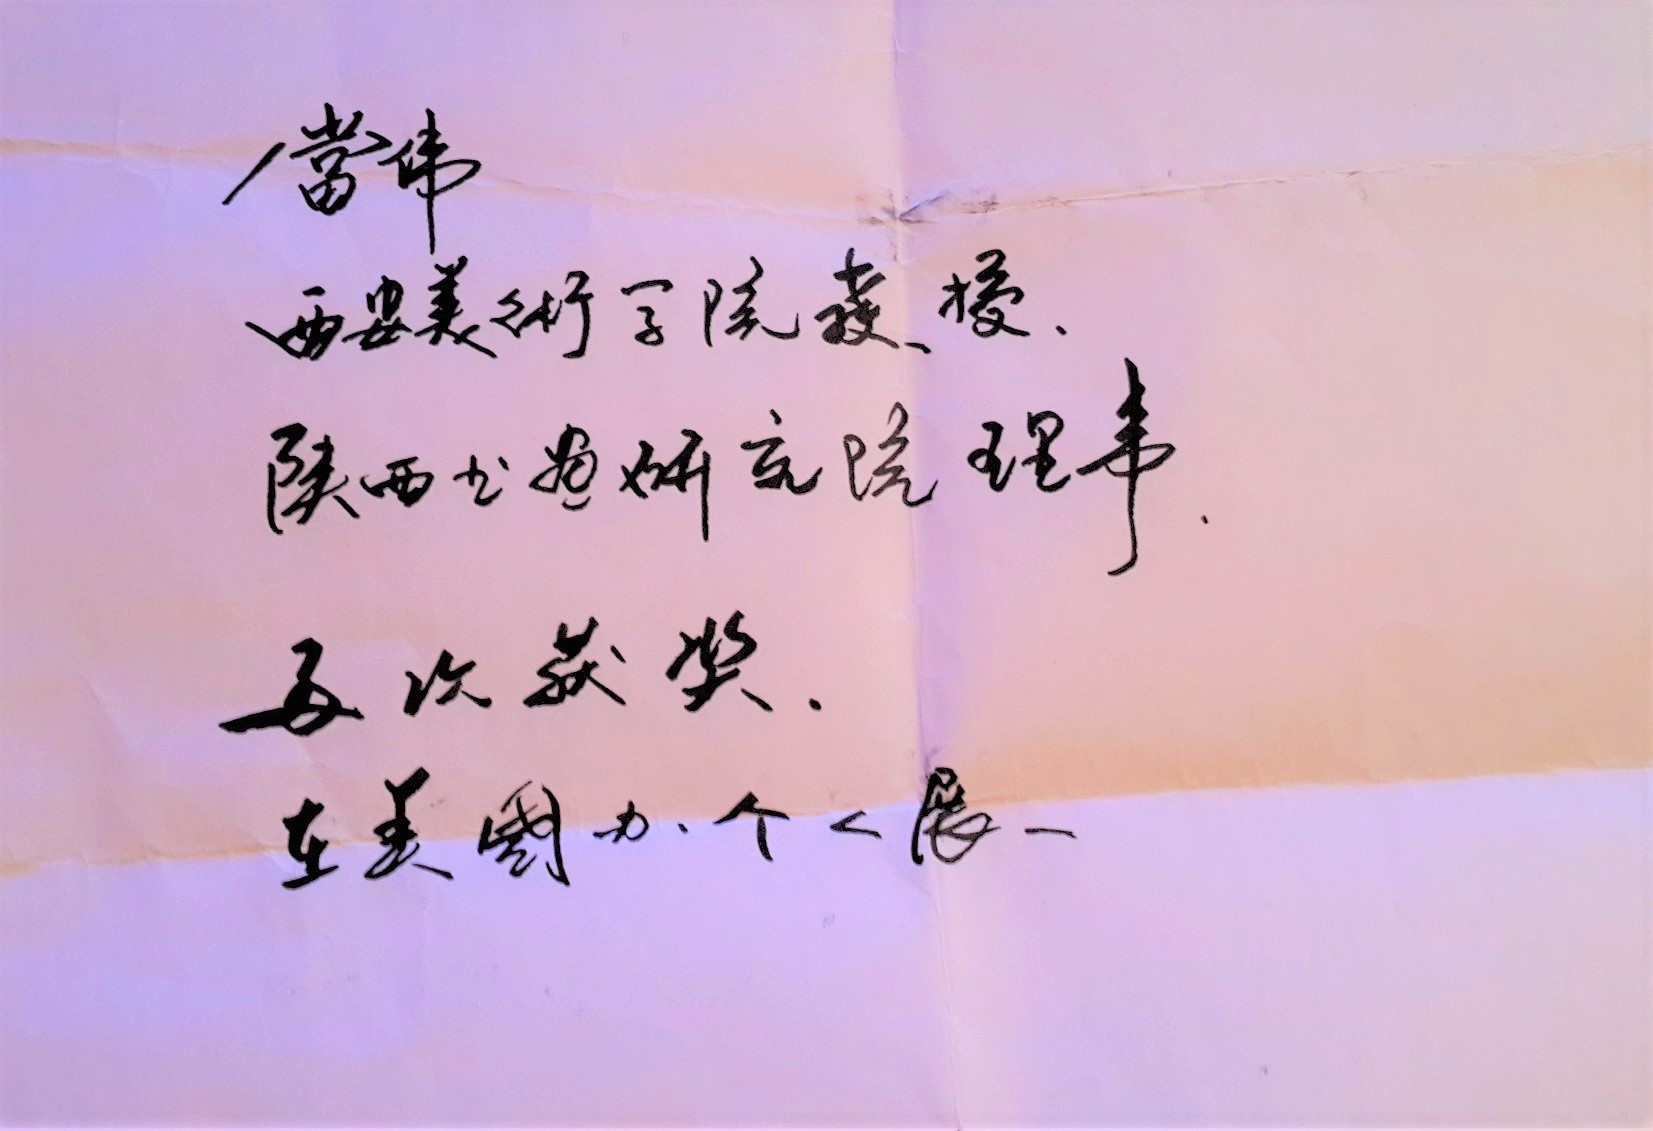 當伟
西安美術学院教授.
陕西书画研究院理事.
多次获奖.
在美國办.个人展